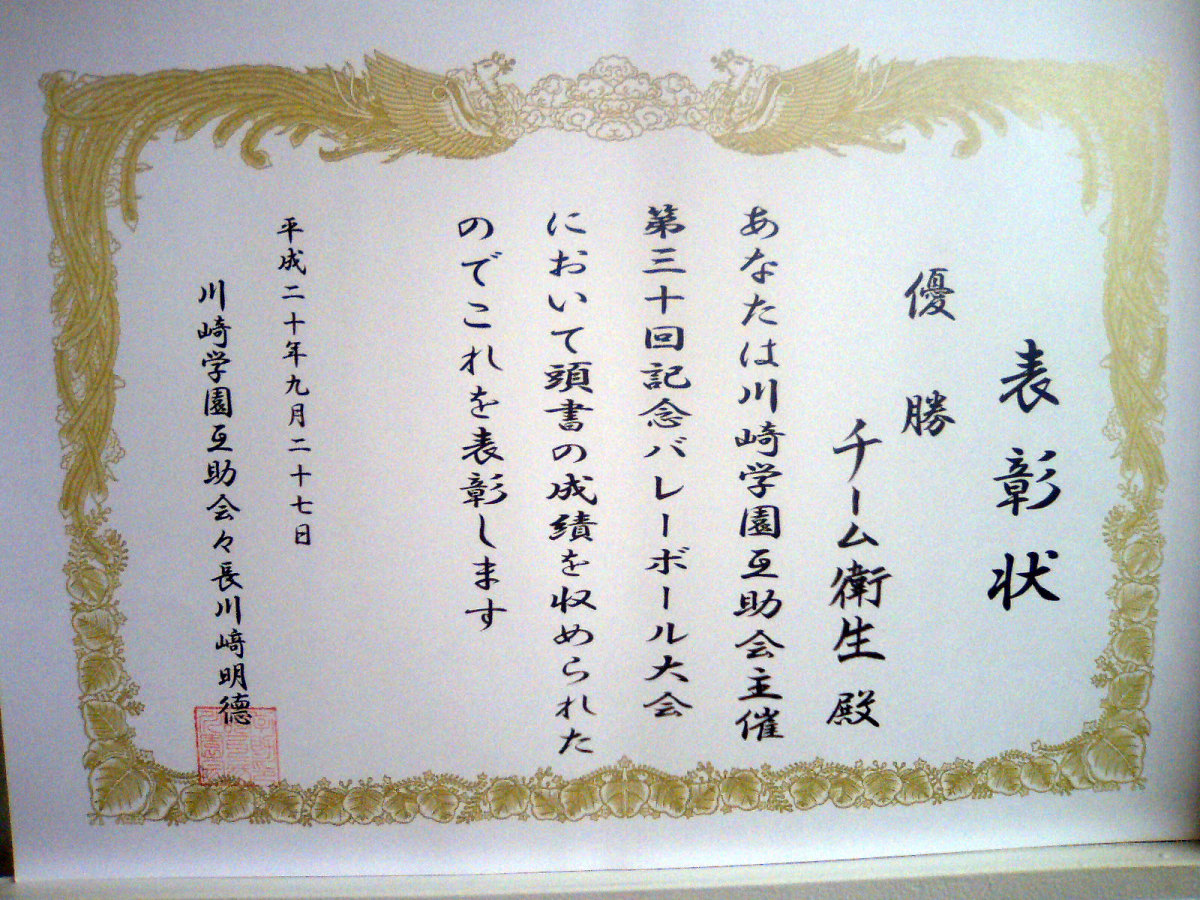 表彰状
優勝
チーム衛生殿
あなたは川崎学園互助会主催
第三十回記念バレーボール大会
において頭書の成績を収められた
のでこれを表彰します
平成二十年九月二十七日
川崎学園互助会々長川﨑明德